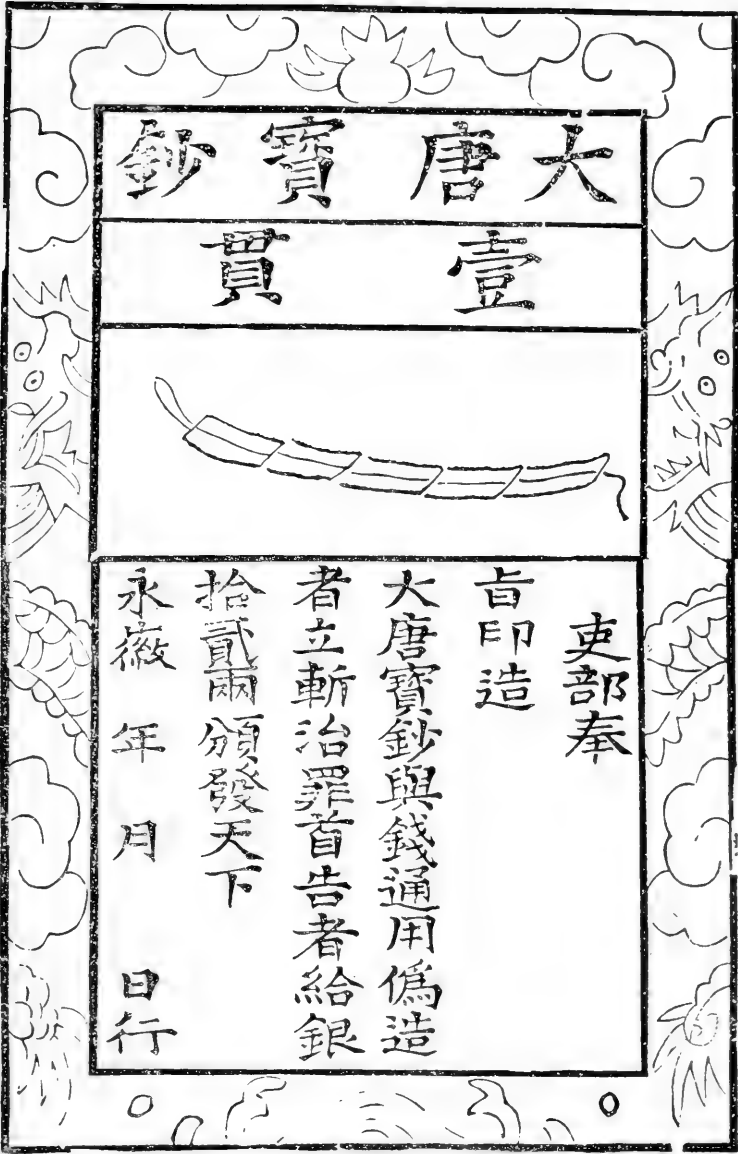 大唐寶鈔
壹貫
吏部奉
旨印造
大唐寶鈔與錢通用偽造
者立斬治罪首告者給銀
拾貳兩頒發天下
永徽 年 月 日行